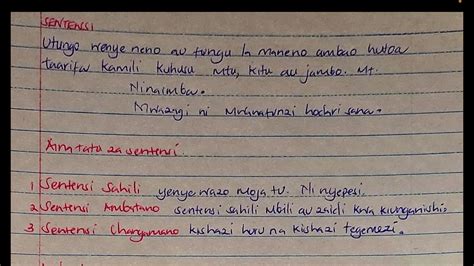 SENTENSI
Utungo wenye neno au fungu la maneno ambao hutoa
taarifa kamili kuhusu mtu, kitu au jambo. Mf.
Ninaimba.
ni Mwanafunzi hodari sana.
Aina tatu za sentensi.
1 Sentensi Sahili yenye wazo moja tu. Ni nyepesi.
2 Sentensi Ambatano sentensi sahili mbili au zaidi kwa kiunganishi.
3 Sentensi Changamano kishazi huru na kishazi tegemezi.